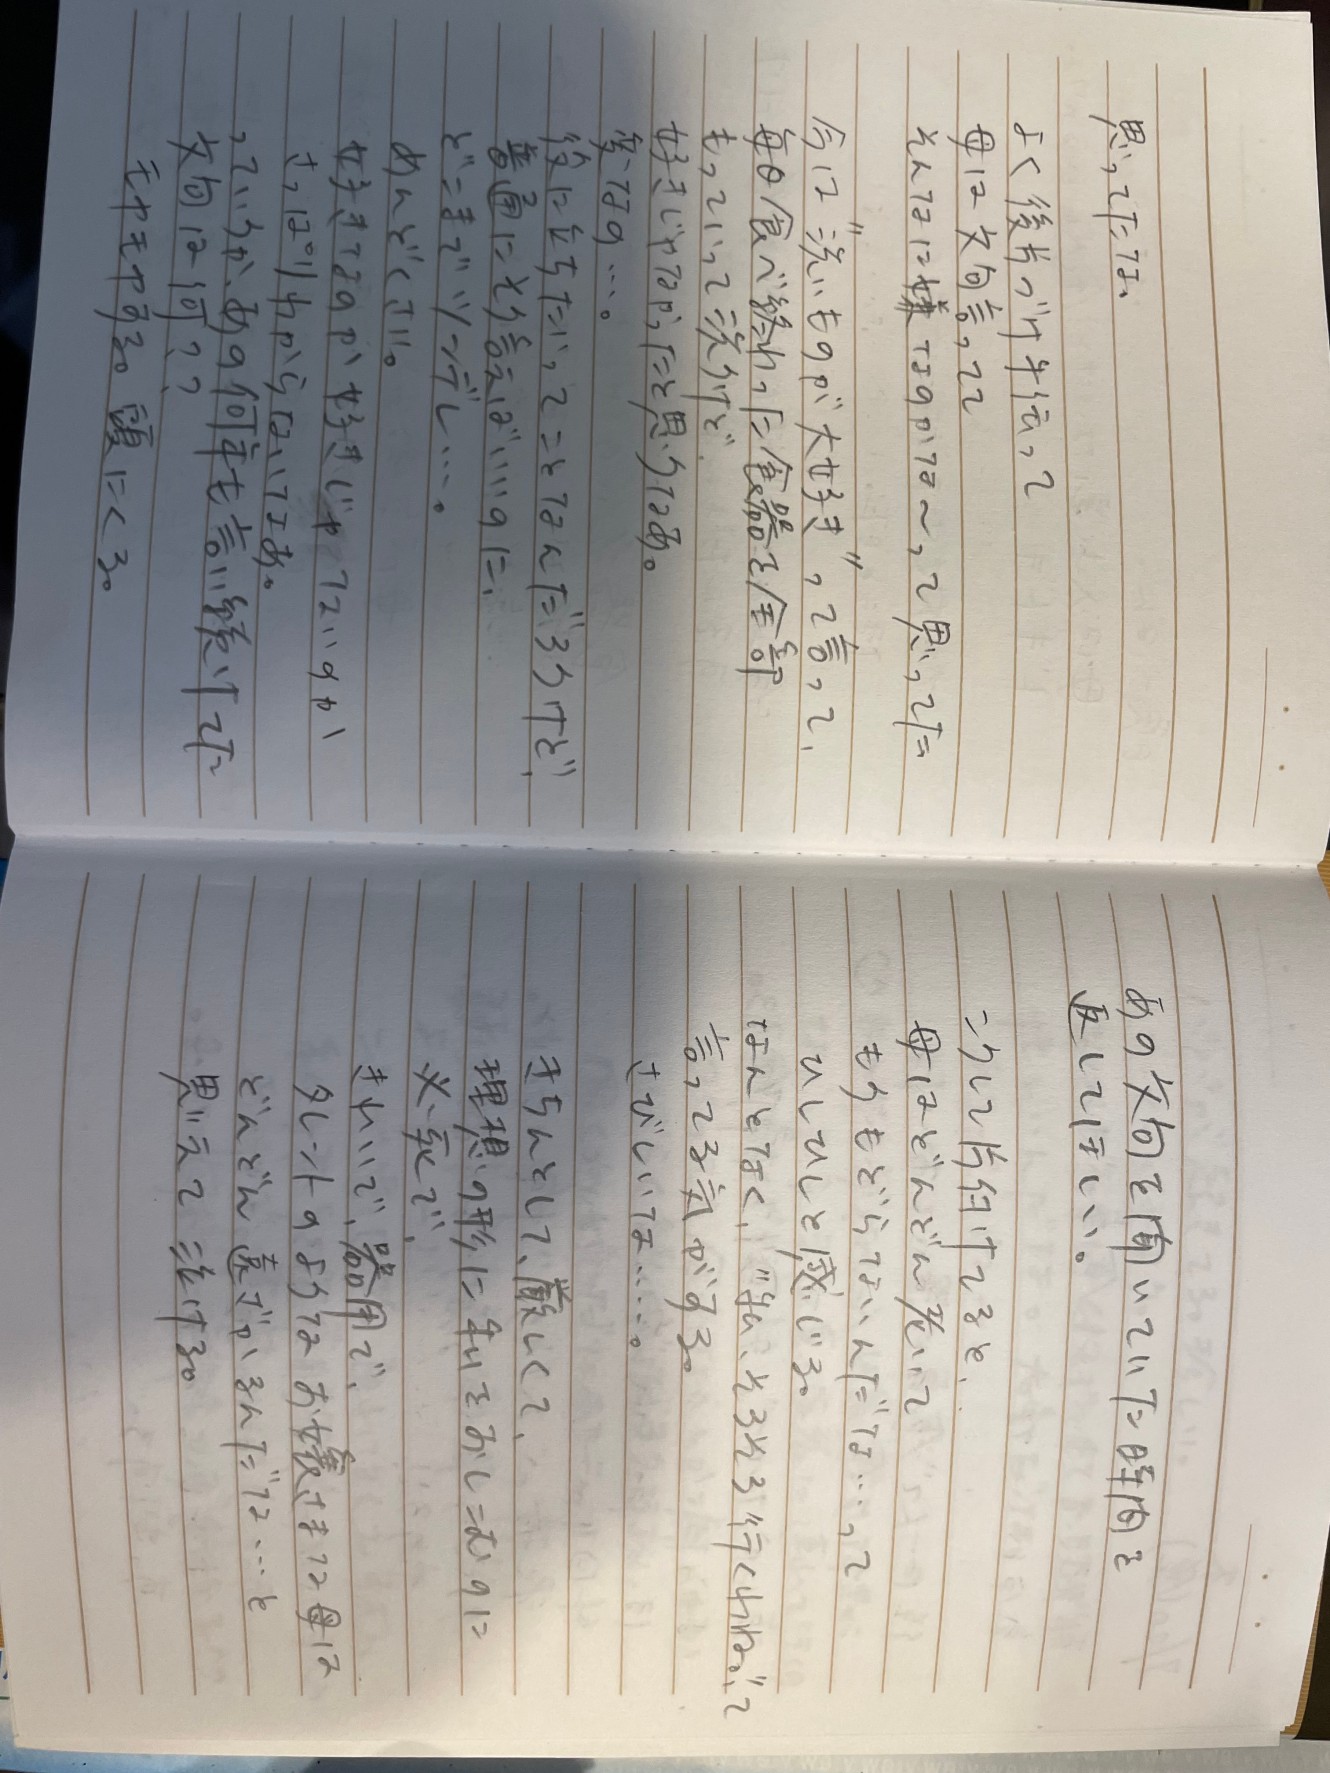 思ってたな。
よく後片づけ手伝って
母は文句言ってて
そんなに嫌なのかな〜って思ってた
今は"洗いものが大好き"って言って、
毎日食べ終わった食器を全部
もっていって洗うけど、
好きじゃなかったと思うなあ。
変なの…。
役に立ちたいってことなんだろうけど、
普通にそう言えばいいのに、
どこまでツンデレ…。
めんどくさい。
好きなのか好きじゃないのか
さっぱりわからないなあ。
っていうか、あの何年も言い続けてた
文句は何??
モヤモヤする。頭にくる。
あの文句を聞いていた時間を
返してほしい。
こうして片付けてると、
母はどんどん老いて
もうもどらないんだな…って
ひしひしと感じる。
なんとなく、"私、そろそろ行くわね。"って
言ってる気がする。
さびしいな…。
きちんとして、厳しくて、
理想の形に私をおしこむのに
必死で、
きれいで、器用で、
タレントのようなお嬢さまな母は
どんどん遠ざかるんだな…と
思えて泣ける。